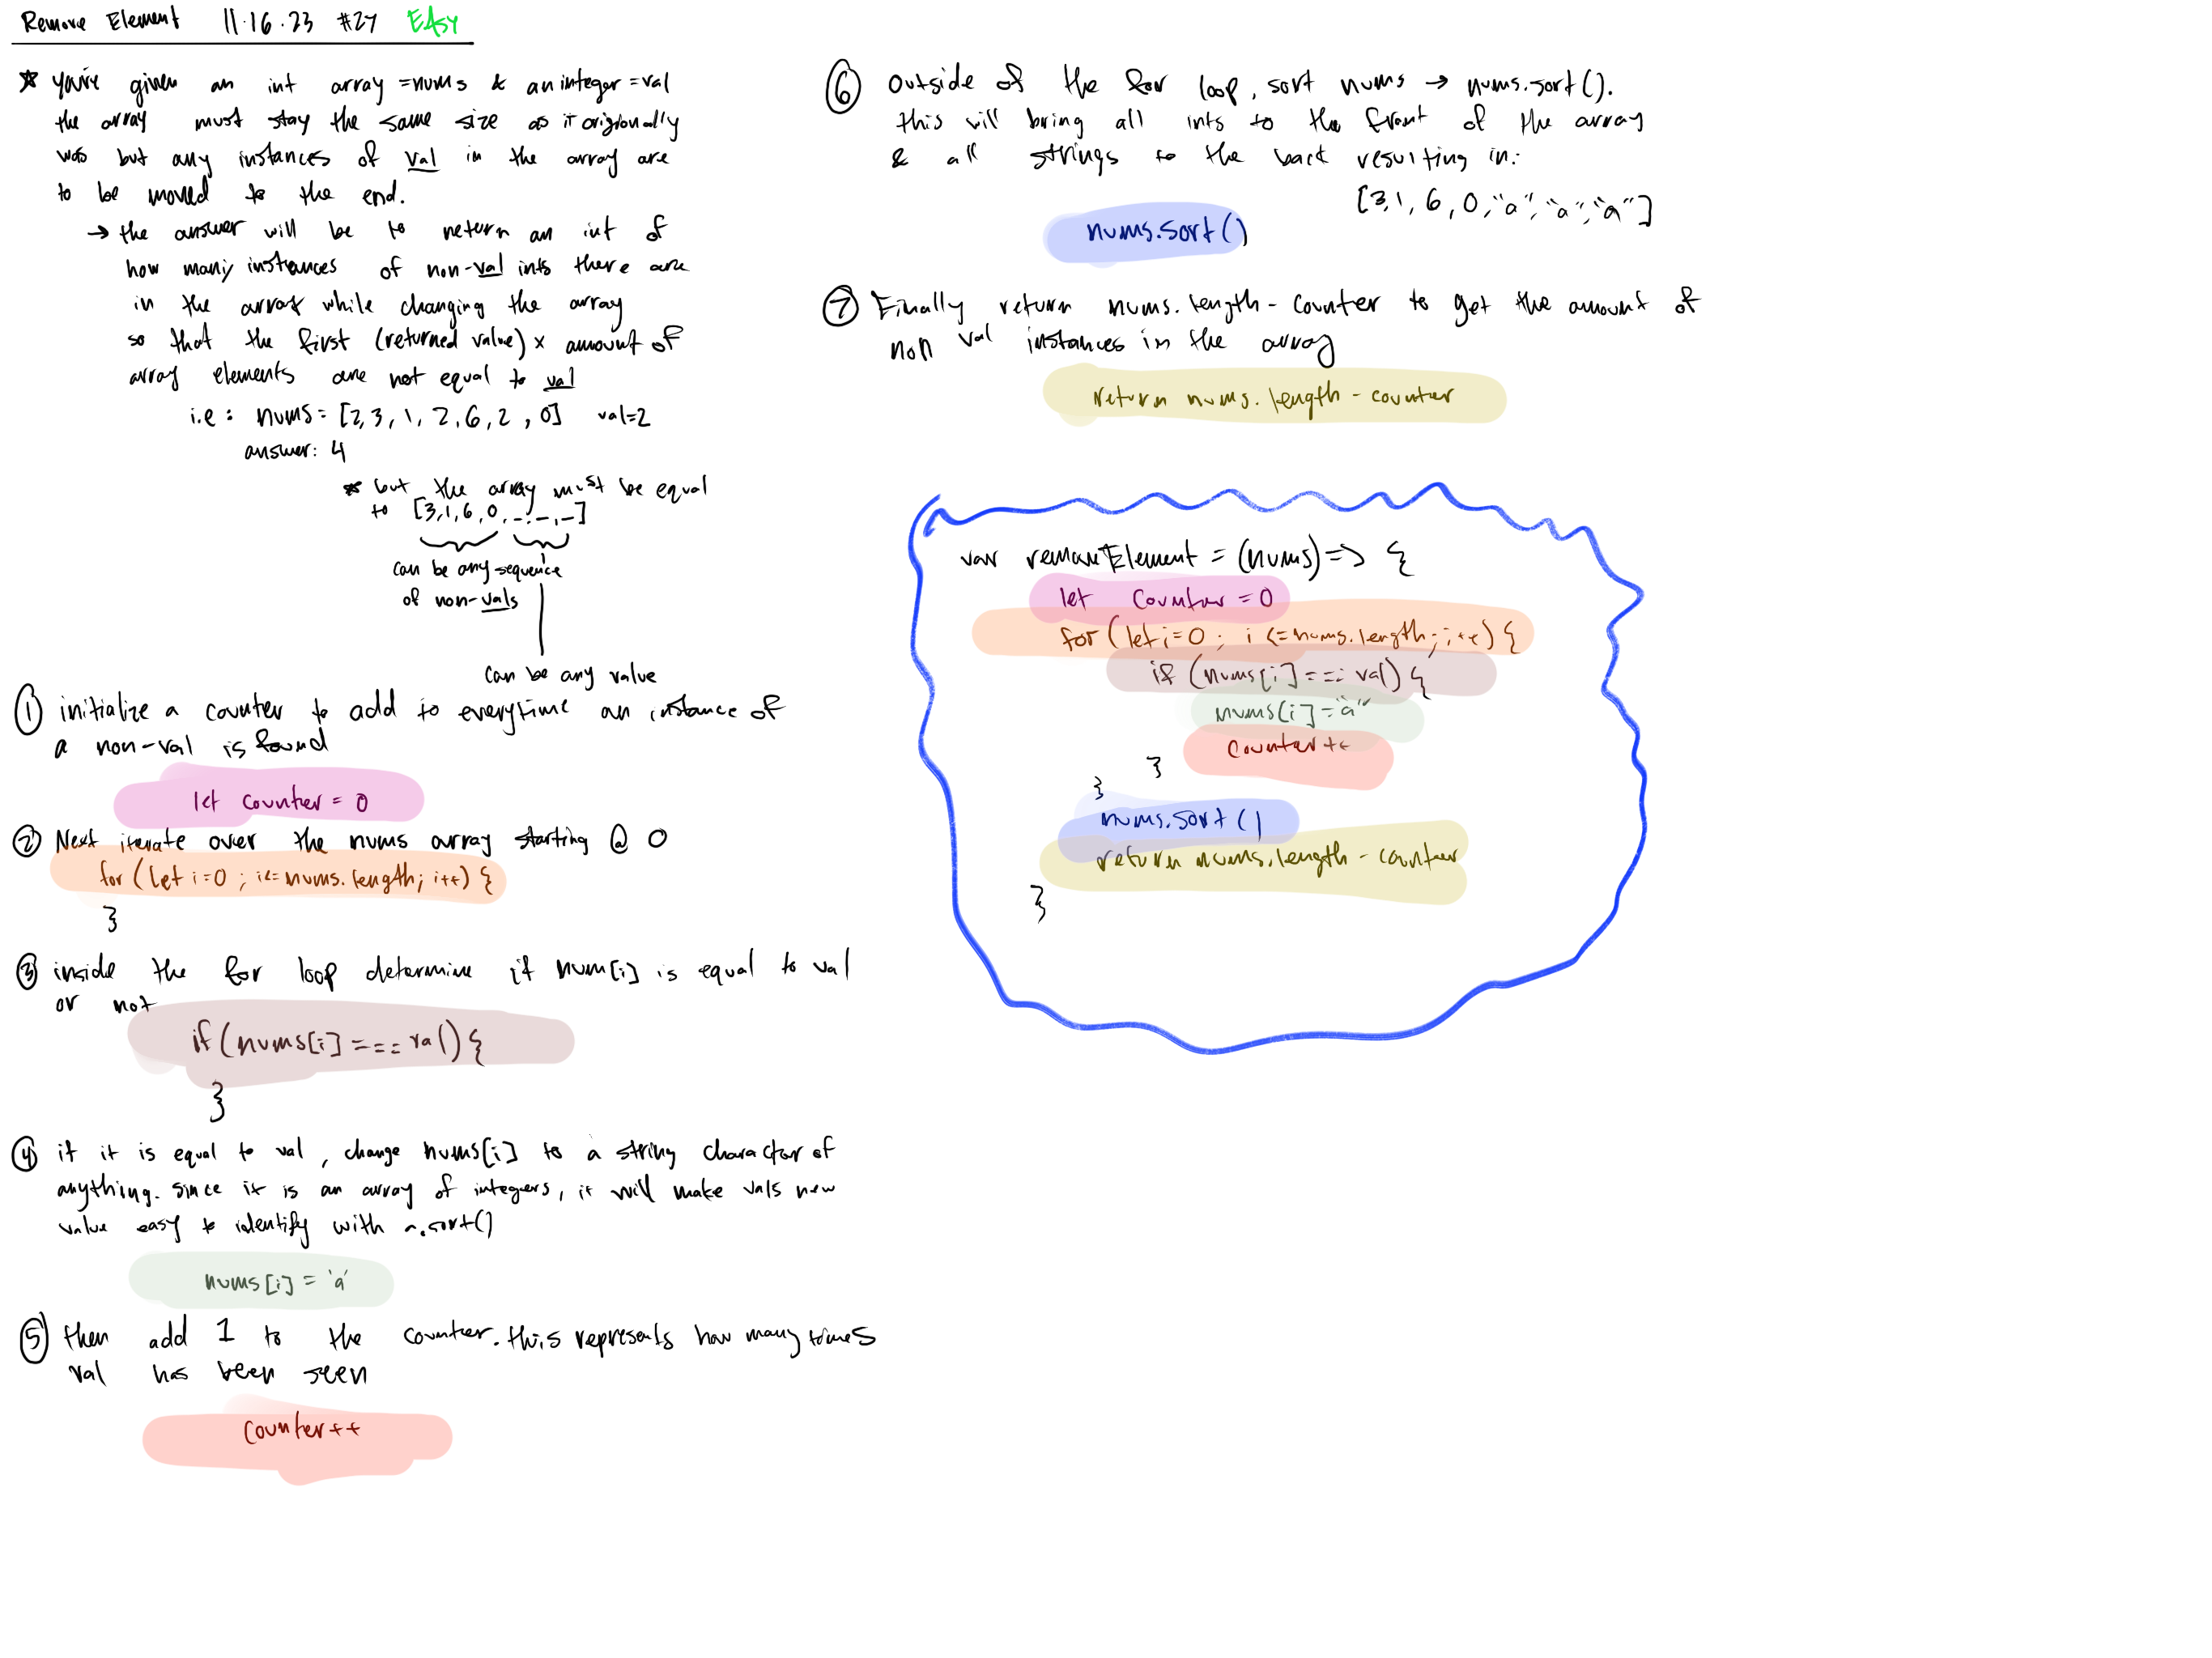 Remove Element 11.16.23 #27 EASY
* you're given an int array = nums & an integer = val
the array must stay the same size as it origionally
was but any instances of val in the array are
to be moved to the end.
→ the answer will be to return an int of
how many instances of non-val ints there are
in the array while changing the array
so that the first (returned value) x amount of
array elements are not equal to val
i.e: nums = [2,3,1,2,6,2,0] val=2
answer: 4
* but the array must be equal
to [3,1,6,0,_,_,_]
can be any sequence
of non-vals
can be any value
① initialize a counter to add to everytime an instance of
a non-val is found
let counter = 0
② Next iterate over the nums array starting @ 0
for (let i=0 ; i<=nums.length; i++) {
}
③ inside the for loop determine if num[i] is equal to val
or not
if (nums[i] === val) {
}
④ if it is equal to val, change nums[i] to a string charactar of
anything. since it is an array of integers, it will make vals new
value easy to identify with a.sort()
nums[i] = 'a'
⑤ then add 1 to the counter. this represents how many times
val has been seen
counter++
⑥ outside of the for loop, sort nums → nums.sort().
this will bring all ints to the front of the array
& all strings to the back resulting in:
[3,1,6,0,"a","a","a"]
nums.sort()
⑦ Finally return nums.length - counter to get the amount of
non val instances in the array
return nums.length - counter
var removeElement = (nums) => {
let counter = 0
for (let i=0 ; i <=nums.length; i++) {
if (nums[i] === val) {
nums[i] = "a"
counter++
}
}
nums.sort()
return nums.length - counter
}